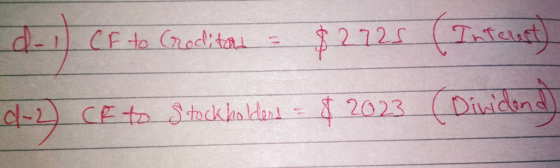 d-1) CF to Creditors = $2725 (Interest)
d-2) CF to Stockholders = $ 2023 (Dividend)